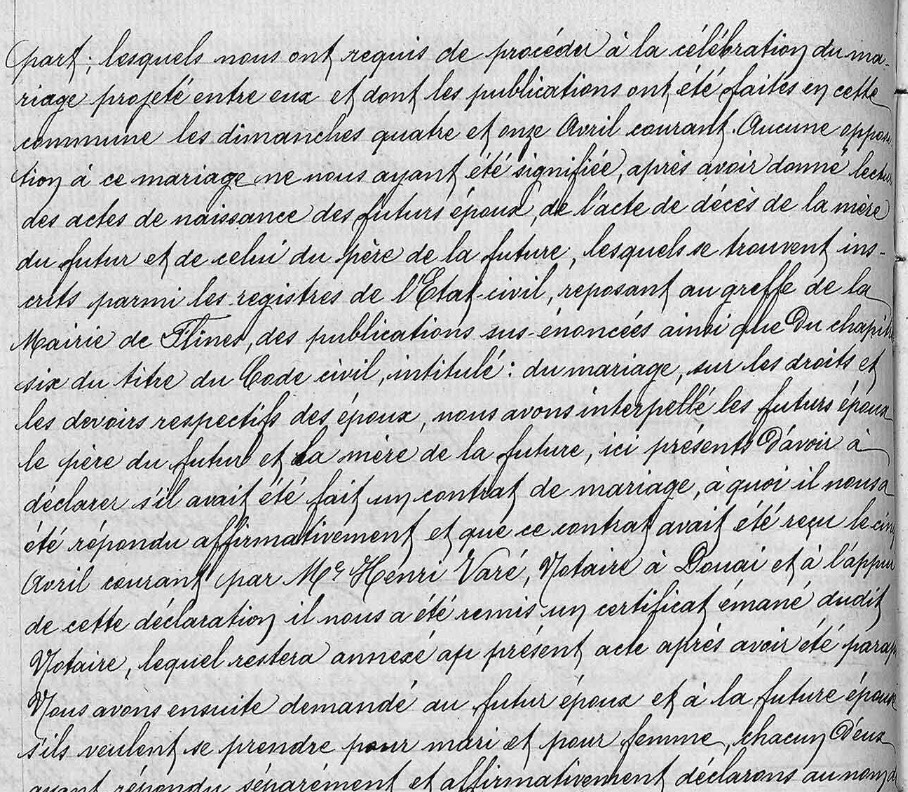 part; lesquels nous ont requis de procéder à la célébration du ma-
riage projeté entre eux et dont les publications ont été faites en cette
commune les dimanches quatre et onze Avril courant. Aucune opposi
tion à ce mariage ne nous ayant été signifiée, après avoir donné lectur
des actes de naissance des futurs époux, de l'acte de décès de la mère
du futur et de celui du père de la future, lesquels se trouvent ins-
crits parmi les registres de l'Etat-civil, reposant au greffe de la
Mairie de Flines, des publications sus-énoncées ainsi que du chapitr
six du titre du Code civil, intitulé: du mariage, sur les droits et
les devoirs respectifs des époux, nous avons interpellé les futurs époux
le père du futur et la mère de la future, ici présents d'avoir à
déclarer s'il avait été fait un contrat de mariage, à quoi il nous a
été répondu affirmativement et que ce contrat avait été reçu le cinq
Avril courant par Me Henri Varé, Notaire à Douai et à l'appui
de cette déclaration il nous a été remis un certificat émané dudit
Notaire, lequel restera annexé au présent acte après avoir été paraph
Nous avons ensuite demandé au futur époux et à la future épouse
s'ils veulent se prendre pour mari et pour femme, chacun d'eux
ayant répondu séparément et affirmativement déclarons au nom de